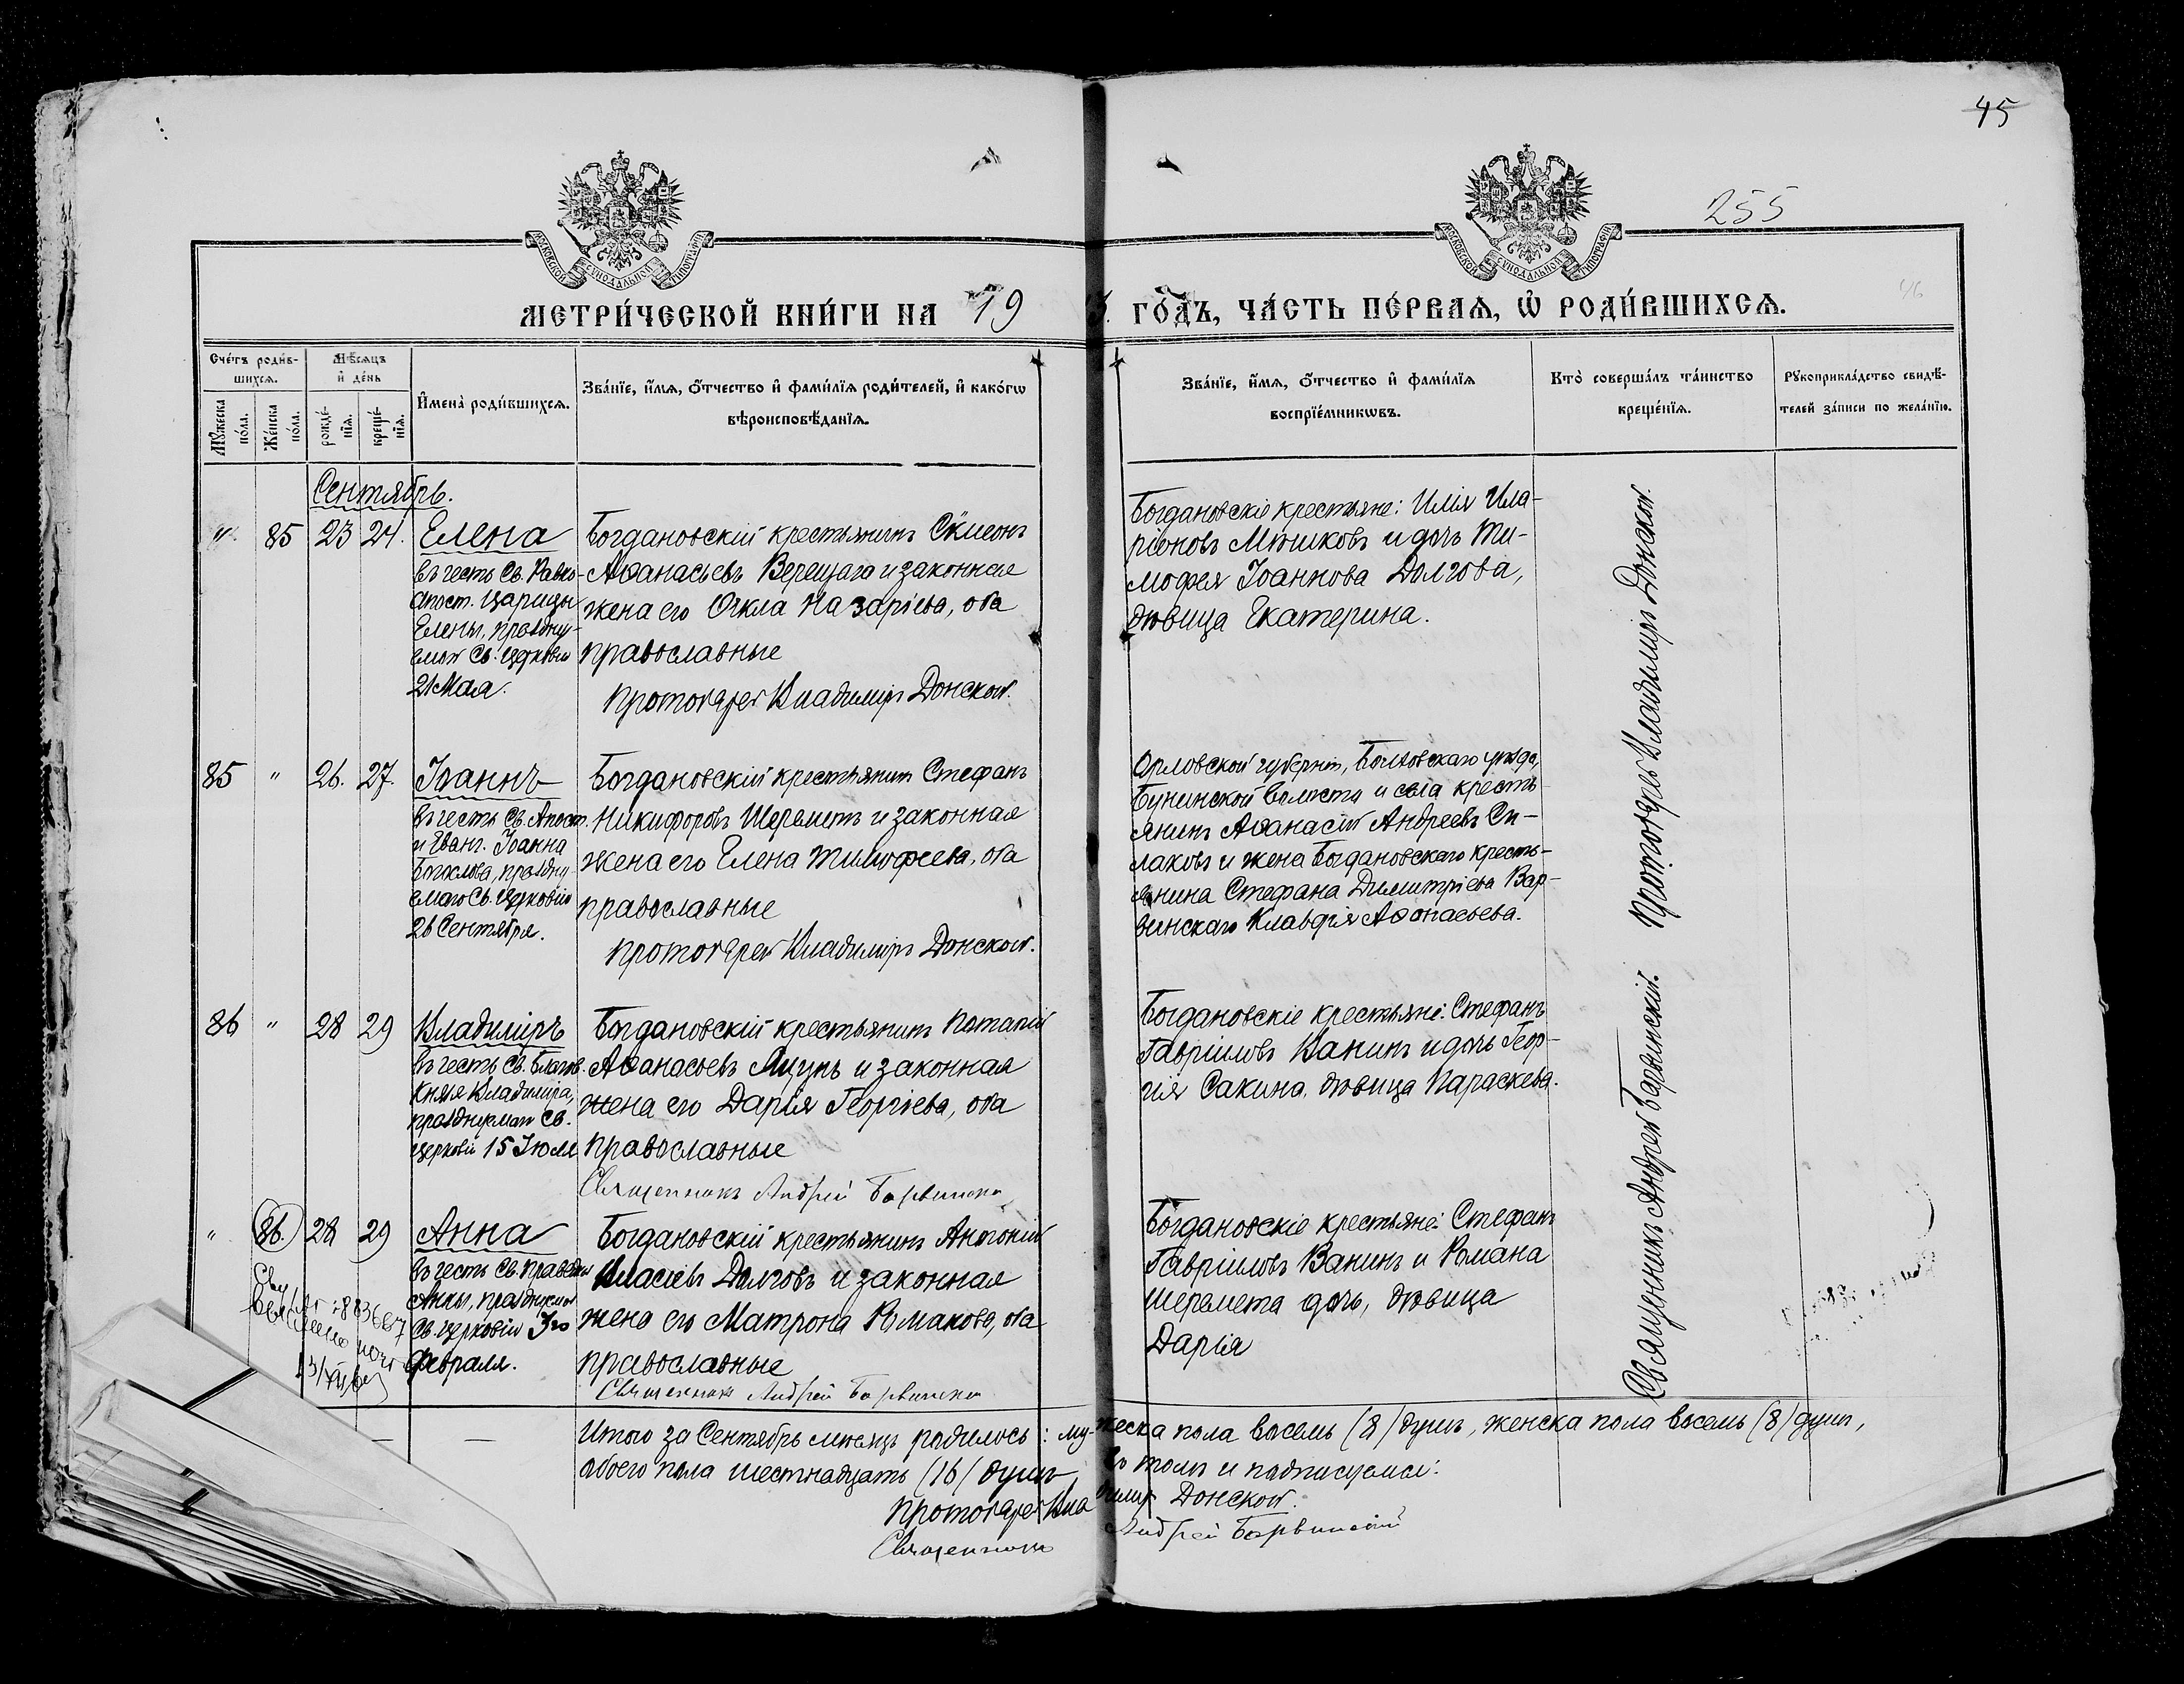 45
255
МОСКОВСКОЙ СѴНОДАЛЬНОЙ ТИПОГРАФІИ
МОСКОВСКОЙ СѴНОДАЛЬНОЙ ТИПОГРАФІИ
МЕТРИ́ЧЕСКОЙ КНИ́ГИ НА 19
ГО́ДЪ, ЧА́СТЬ ПЕ́РВАЯ, Ѽ РОДИ́ВШИХСЯ.
Сче́тъ роди́в-
шихся.
Мѣ́сяцъ
и҆ де́нь
Мꙋ́жеска
по́ла.
Же́нска
по́ла.
рожде́-
нїя.
креще́-
нїя.
И҆мена̀ роди́вшихся.
Зва́нїе, и҆́мя, ѻ҆́тчество и҆ фами́лїя роди́телей, и҆ како́гѡ
вѣроисповѣ́данїя.
Зва́нїе, и҆́мя, ѻ҆́тчество и҆ фами́лїя
воспрїе́мникѡвъ.
Кто̀ соверша́лъ та́инство
креще́нїя.
Рꙋкоприкла́дство свидѣ́-
телей за́писи по жела́нїю.
Сентябрь.
" 85 23 24. Елена
въ честь Св. Равно-
апост. Царицы
Елены, праздну-
емой Св. Церковію
21 Мая.
Богдановскій крестьянинъ Сѷмеонъ
Аѳанасьевъ Верещага и законная
жена его Ѳекла Назаріева, оба
православные
Протоіерей Владиміръ Донской.
Богдановскіе крестьяне: Илія Ила-
ріоновъ Мѣшковъ и дочь Ти-
мофея Іоаннова Долгова,
дѣвица Екатерина.
85 " 26. 27. Іоаннъ
въ честь Св. Апост.
и Еванг. Іоанна
Богослова, праздну-
емаго Св. Церковію
26 Сентября.
Богдановскій крестьянинъ Стефанъ
Никифоровъ Шереметъ и законная
жена его Елена Тимофеева, оба
православные
Протоіерей Владиміръ Донской.
Орловской губерніи, Болховскаго уѣзда,
Бунинской волости и села кресть-
янинъ Аѳанасій Андреевъ Си-
лаковъ и жена Богдановскаго кресть-
янина Стефана Димитріева Вар-
винскаго Клавдія Аѳанасьева.
Протоіерей Владиміръ Донской.
86 " 28 29 Владиміръ
въ честь Св. Благов.
Князя Владиміра,
празднуемаго Св.
Церковію 15 Іюля
Богдановскій крестьянинъ Потапій
Аѳанасьевъ Яцунъ и законная
жена его Дарія Георгіева, оба
православные
Священникъ Андрей Барвинскій
Богдановскіе крестьяне: Стефанъ
Гавріиловъ Ванинъ и дочь Геор-
гія Сакина, дѣвица Параскева.
" 86. 28 29 Анна
въ честь Св. Праведн.
Анны, празднуемой
Св. Церковію 3го
Февраля.
Богдановскій крестьянинъ Антоній
Власіевъ Долговъ и законная
жена его Матрона Романова, оба
православные
Священникъ Андрей Барвинскій
Богдановскіе крестьяне: Стефанъ
Гавріиловъ Ванинъ и Романа
Шеремета дочь, дѣвица
Дарія
Священникъ Андрей Барвинскій.
Итого за Сентябрь мѣсяцъ родилось: мужеска пола восемь (8) душъ, женска пола восемь (8) душъ,
обоего пола шестнадцать (16) душъ, въ томъ и подписуемся:
Протоіерей Владиміръ Донской.
Священникъ Андрей Барвинскій